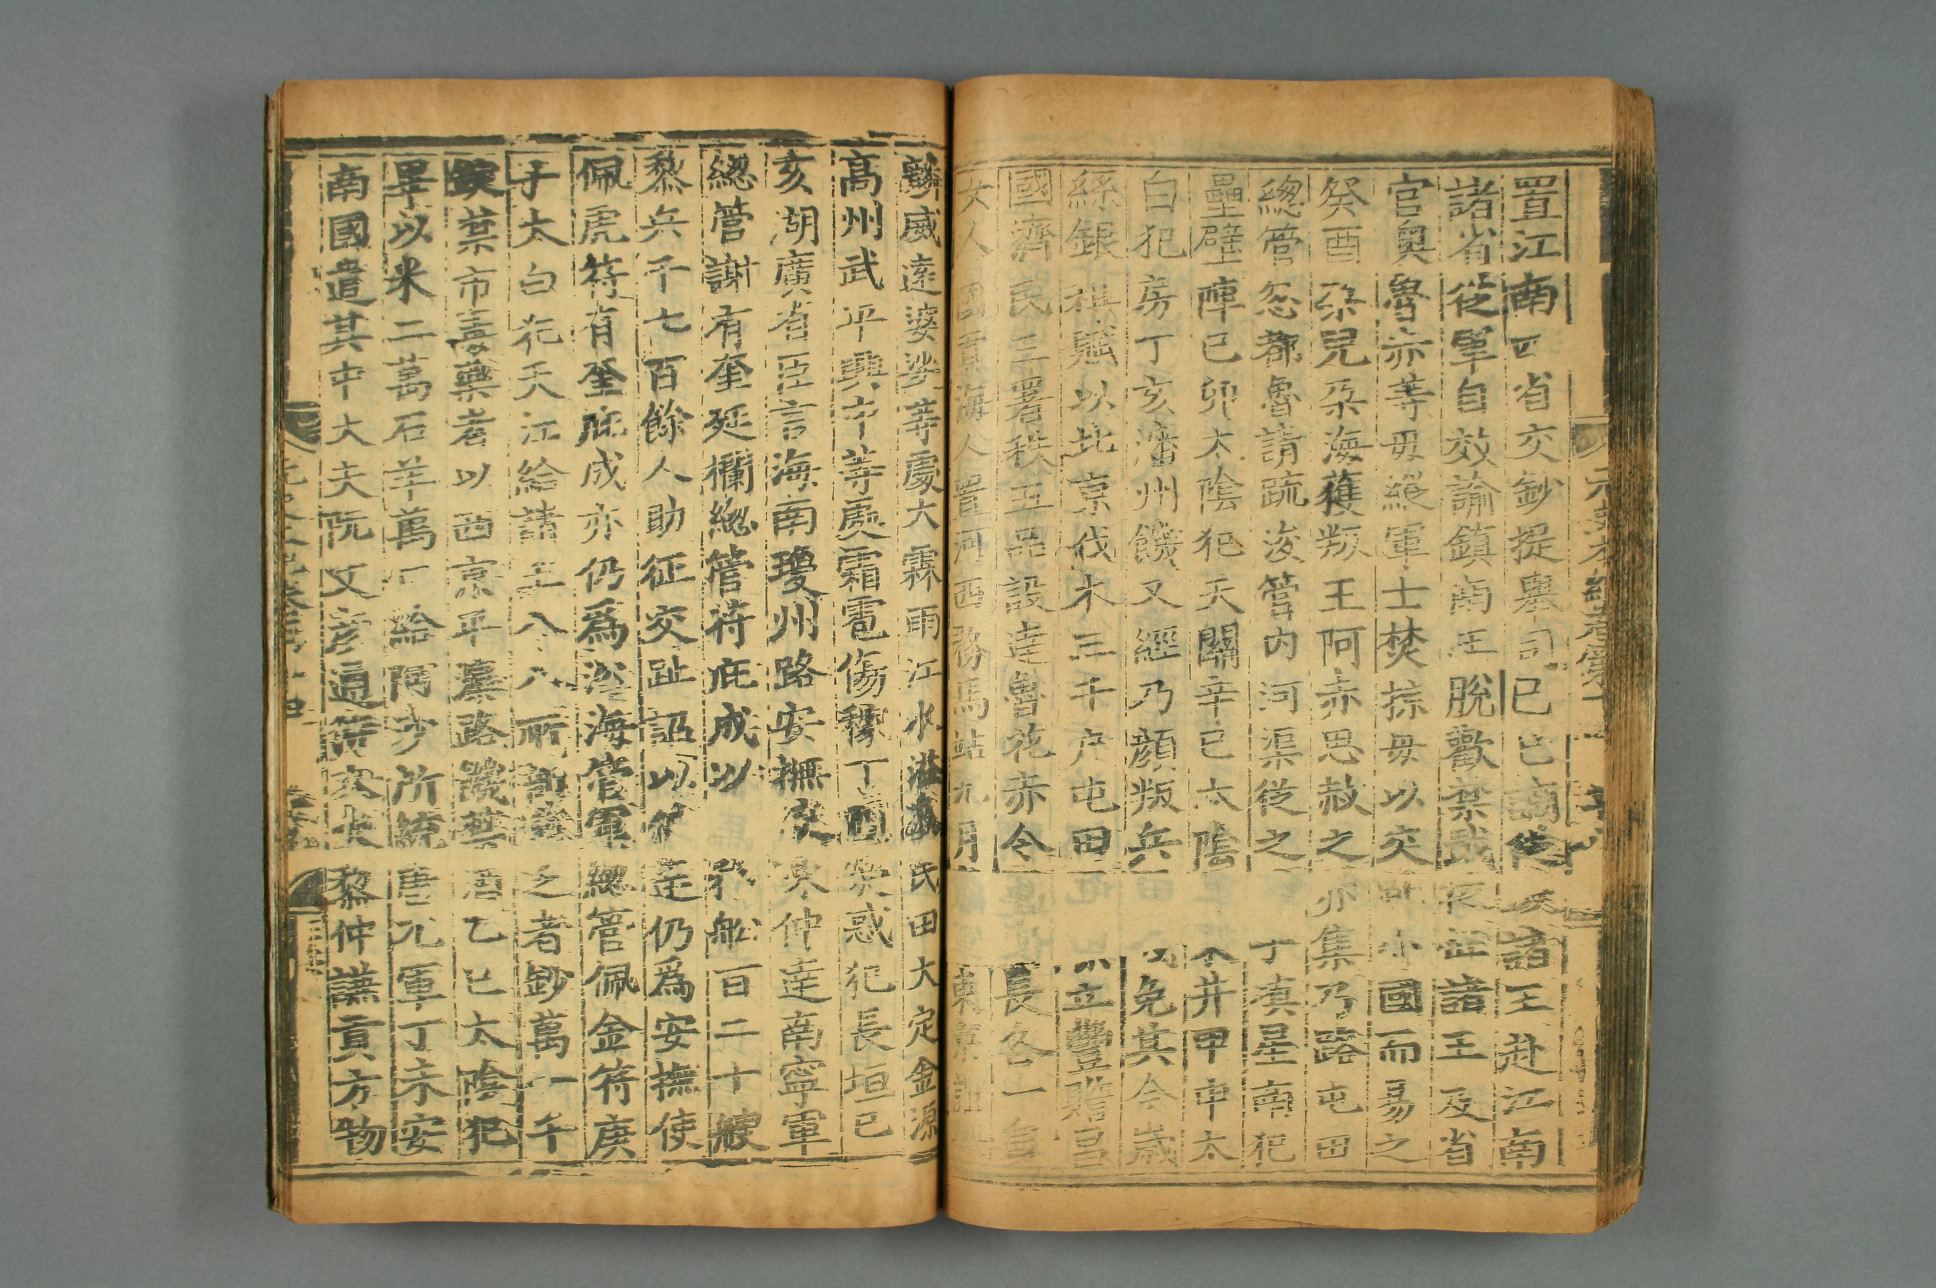 置江南四省交鈔提舉司己巳諸王赴江南
諸省從軍自效諭鎮南王脫歡禁戢從征諸王及省
官奧魯赤等毋縱軍士焚掠毋以交趾小國而易之
癸酉朶兒朶海獲叛王阿赤思赦之亦集乃路屯田
總管忽都魯請疏浚管內河渠從之丁塡星南犯
壘壁陣己卯太陰犯天關辛巳太陰井甲申太
白犯房丁亥瀋州饑又經乃顏叛兵免其今歲
絲銀租賦以北京伐木三千户屯田立豐贍昌
國濟民三署秩五品設達魯花赤令長各一員
女人國貢海人置河西務馬站九月東京誼
麟威遠婆娑等處大霖雨江水溢民田大定金源
高州武平興中等處霜雹傷稼丁酉熒惑犯長垣己
亥湖廣省臣言海南瓊州路安撫使陳仲達南寧軍
總管謝有奎延欄總管符庇成以船百二十艘
黎兵千七百餘人助征交趾詔以仲達仍爲安撫使
佩虎符有奎庇成亦仍爲沿海管軍總管佩金符庚
子太白犯天江給諸王八八所部窮乏者鈔萬一千
禁市毒藥者以西京平灤路饑禁酒乙巳太陰犯
畢以米二萬石羊萬口給阿沙所統唐兀軍丁未安
南國遣其中大夫阮文彥通大夫黎仲謙貢方物